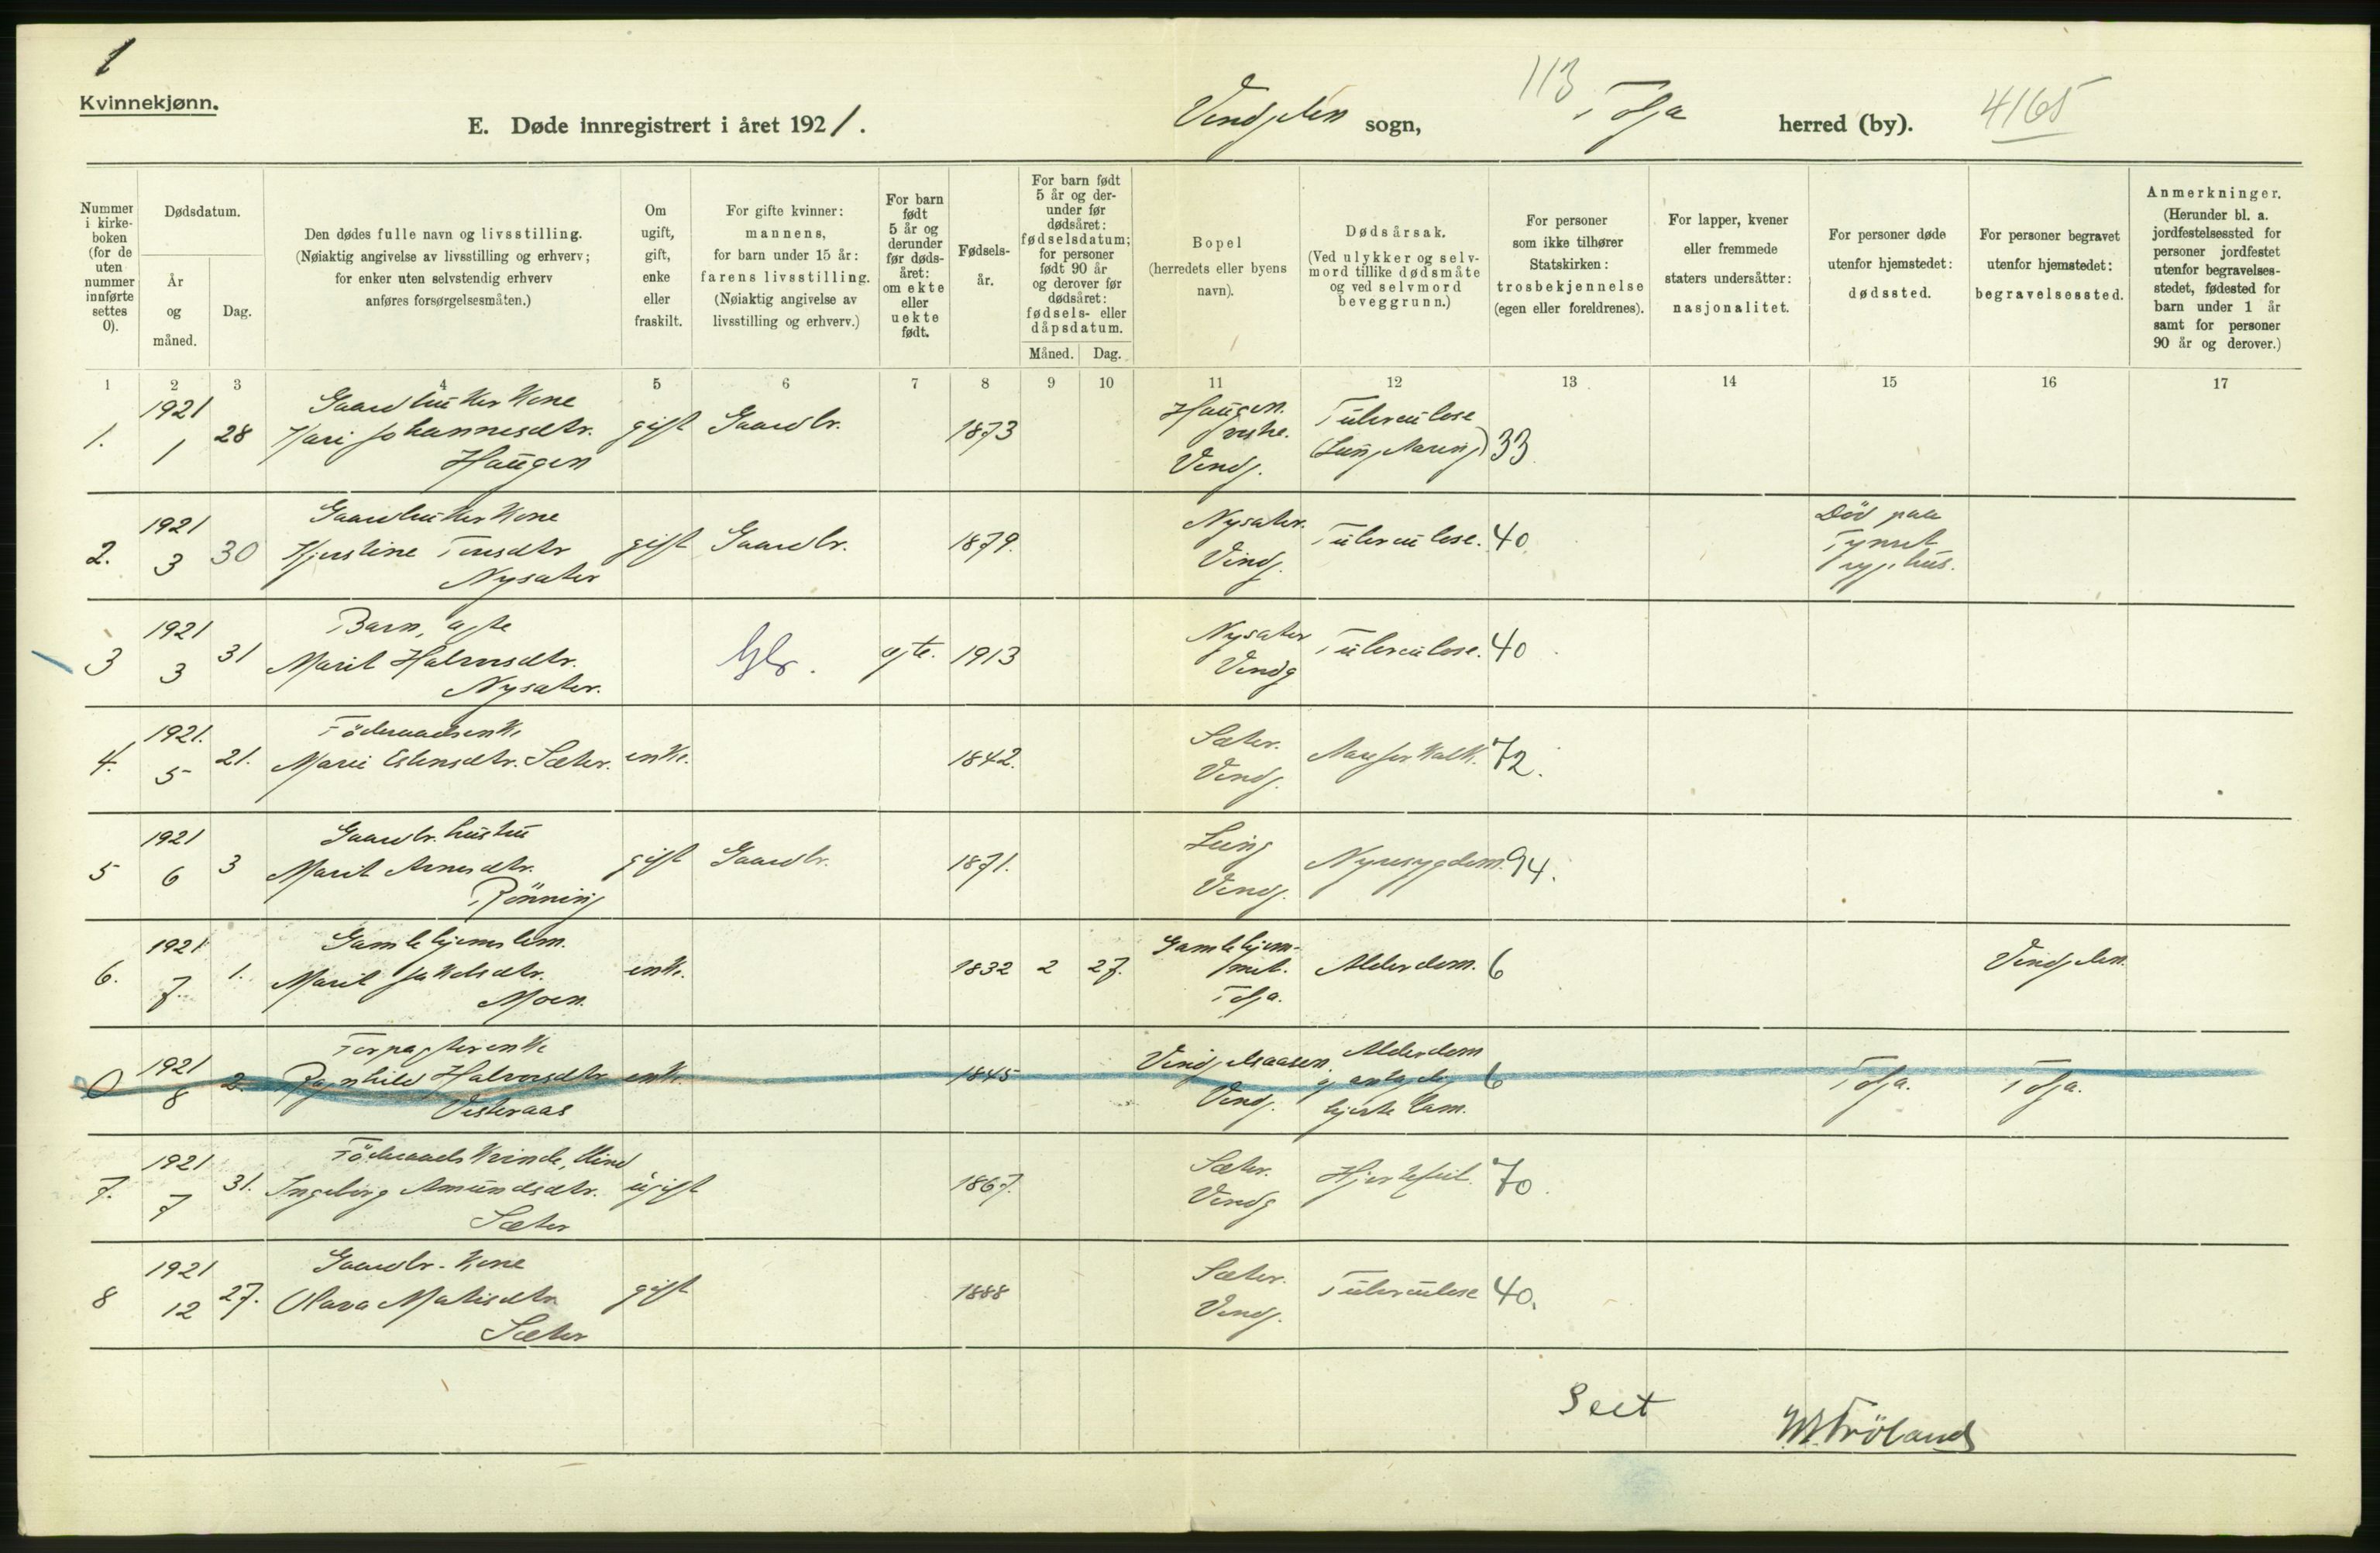 1
Kvinnekjønn.
E. Døde innregistrert i året 1921.
Vingelen sogn,
113
Tolga herred (by).
4165
Nummer i kirkeboken (for de uten nummer innførte settes 0).
Dødsdatum.
År og måned.
Dag.
Den dødes fulle navn og livsstilling.
(Nøiaktig angivelse av livsstilling og erhverv; for enker uten selvstendig erhverv anføres forsørgelsesmåten.)
Om ugift, gift, enke eller fraskilt.
For gifte kvinner: mannens, for barn under 15 år: farens livsstilling.
(Nøiaktig angivelse av livsstilling og erhverv.)
For barn født 5 år og derunder før dødsåret: om ekte eller uekte født.
Fødselsår.
For barn født 5 år og derunder før dødsåret: fødselsdatum; for personer født 90 år og derover før dødsåret: fødsels- eller dåpsdatum.
Måned. Dag.
Bopel (herredets eller byens navn).
Dødsårsak.
(Ved ulykker og selvmord tillike dødsmåte og ved selvmord beveggrunn.)
For personer som ikke tilhører Statskirken: trosbekjennelse (egen eller foreldrenes).
For lapper, kvener eller fremmede staters undersåtter: nasjonalitet.
For personer døde utenfor hjemstedet: dødssted.
For personer begravet utenfor hjemstedet: begravelsessted.
Anmerkninger.
(Herunder bl. a. jordfestelsessted for personer jordfestet utenfor begravelsesstedet, fødested for barn under 1 år samt for personer 90 år og derover.)
1 2 3 4 5 6 7 8 9 10 11 12 13 14 15 16 17
1921 Gaardbruker Kone Haugen Tuberculose
1. 1 28 Kari Johannesdtr. gift Gaardbr. 1873 33
Haugen Ving.
1921 Gaardbruker Kone Nysæter. Død paa
2. 3 30 Kjerstine Toresdtr gift Gaardbr. 1879. Tuberculose. 40 Tynset
Nysæter Ving. sygehus.
1921 Barn, ægte Nysæter
3 3 31 Marit Halvorsdtr. Gbr. ægte. 1913 Tuberculose. 40
Nysæter. Ving
1921. Föderaadsenke Sæter.
4. 5 21. Mari Estensdtr. Sæter. enke. 1842. Aareforkalk. 72.
Ving.
1921 Gaardbr. hustru
5 6 3 Marit Arnesdtr. gift Gaardbr. 1871. Nyresygdom. 94.
Rönning Ving.
1921 Gamlehjemslem. Gamlehjem-
6. 7. 1. Marit Jakobsdtr. enke. 1832 2 27. met. Alderdom. 6 Vingelen.
Moen. Tolga.
1921 Forpagterenke Vingelsaasen. Alderdom
0 8 2. Ragnhild Halvorsdtr enke. 1845 og antagelig 6 Tolga. Tolga.
Vesteraas Ving. hjertelam.
1921 Föderaads Kvinde, blind Sæter.
7. 7 31. Ingeborg Amundsdtr. ugift 1867. Hjertefeil. 70.
Sæter Ving
1921 Gaardbr. Kone Sæter.
8 12 27. Olava Mathisdtr gift 1888 Tuberculose 40.
Sæter Ving.
Seet